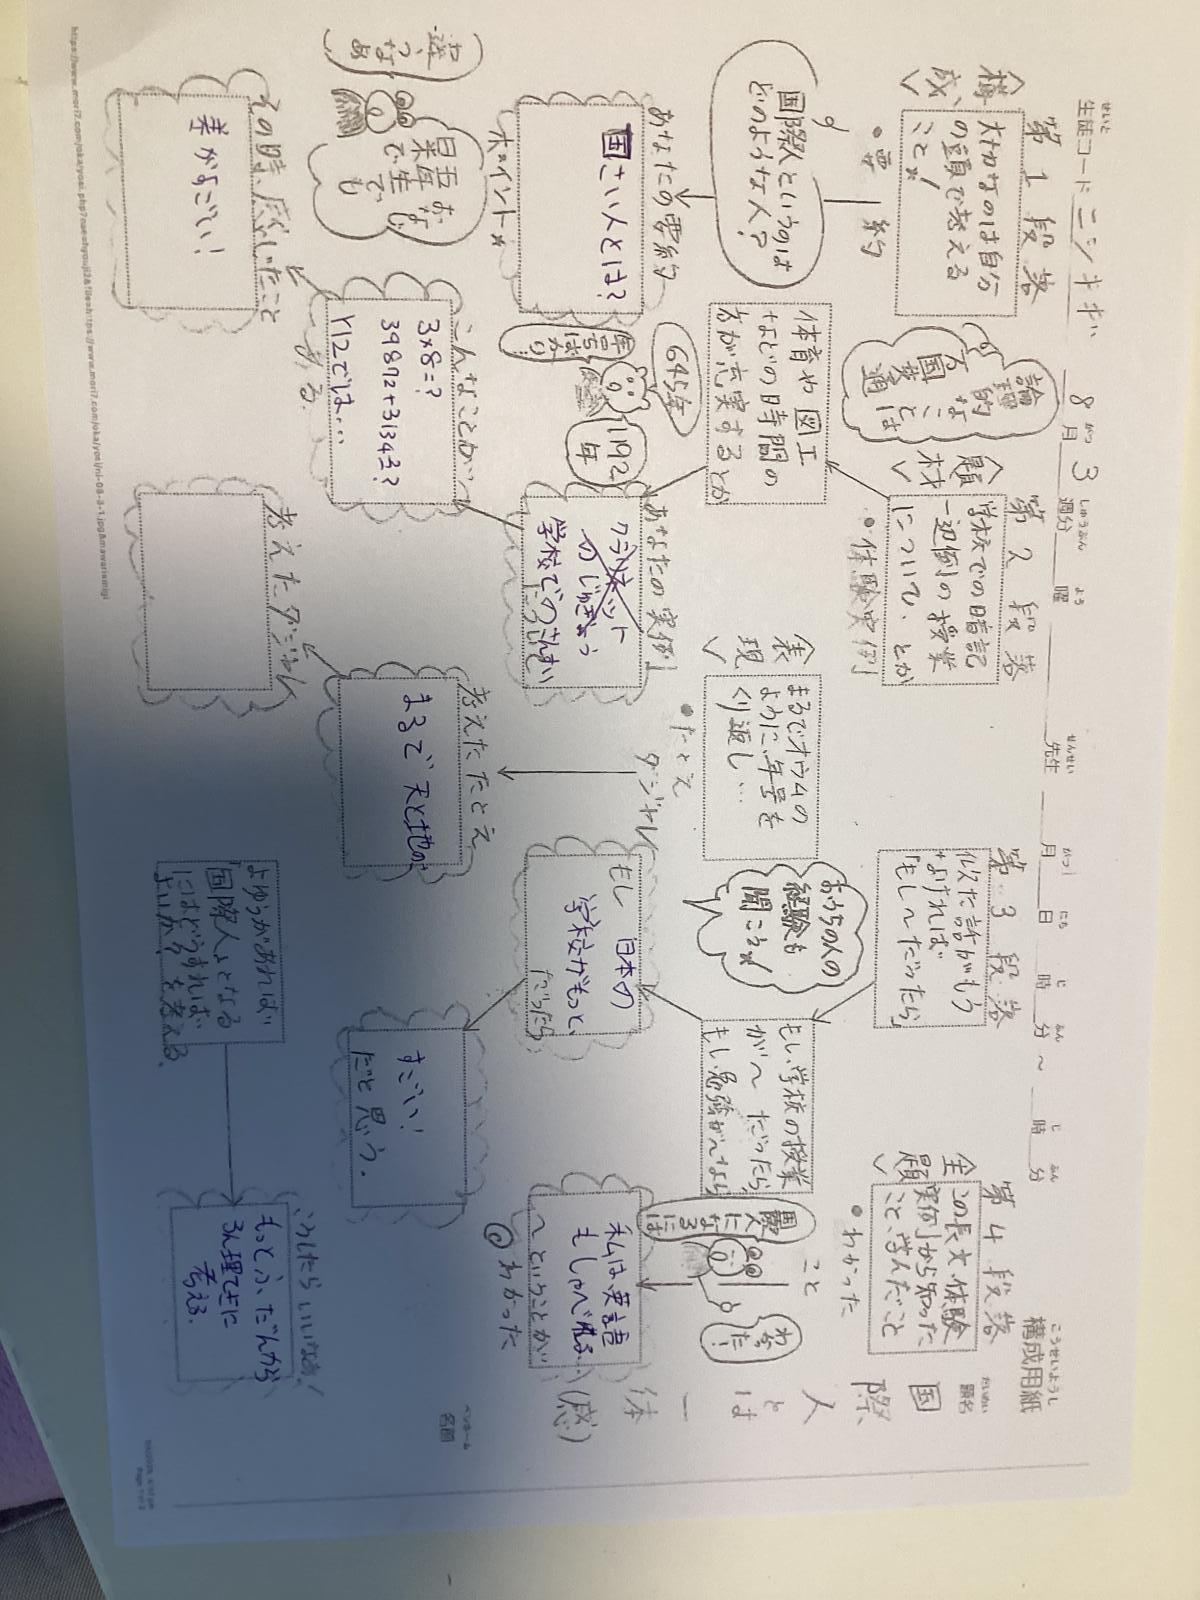 構成用紙
生徒コード ニシキギ 8月 3週分 曜 先生 月 日 時 分 ～ 時 分
題名 国際人とは (感)
ペンネーム
名前
第1段落
＜構成＞
大切なのは自分
の頭で考える
こと！
・要約
国際人というのは
どのような人？
あなたの要約
国さい人とは？
ポイント
おなじ
星で生
でも
その時、感じたこと
差がすごい！
第2段落
＜題材＞
学校での暗記
一辺倒の授業
について、とか
・体験実例
論理的
なことは
万国共通
体育や図工
などの時間の
方が充実するとか
645年
1192年
年号ばかり
あなたの実例
クラリネット
のじゅぎょう
学校でのさんすう
こんなことが
ある
3×8=?
39872+31343?
Y12では…
考えたダジャレ
＜表現＞
まるでオウムの
ように年号を
くり返し…
・たとえ
ダジャレ
考えたたとえ
まるで天と地の
第3段落
似た話がもう
なければ
「もし～だったら」
おうちの人の
経験も
聞こう
もし、学校の授業
が～だったら、
もし勉強が～なら
もし
日本の
学校がもっと、
だったら
すごい！
だと思う。
よゆうがあれば
「国際人」となる
にはどうすれば
よいか？を考える。
第4段落
＜主題＞
この長文・体験
実例から知った
こと、学んだこと
・わかった
こと
国際
人になるには
わかった！
私は、英語
もしゃべれる
～ということが
わかった
こうしたらいいなあ！
もっと、ふだんから
ろん理てきに
考える。
https://www.mori7.com/oka/yosi.php